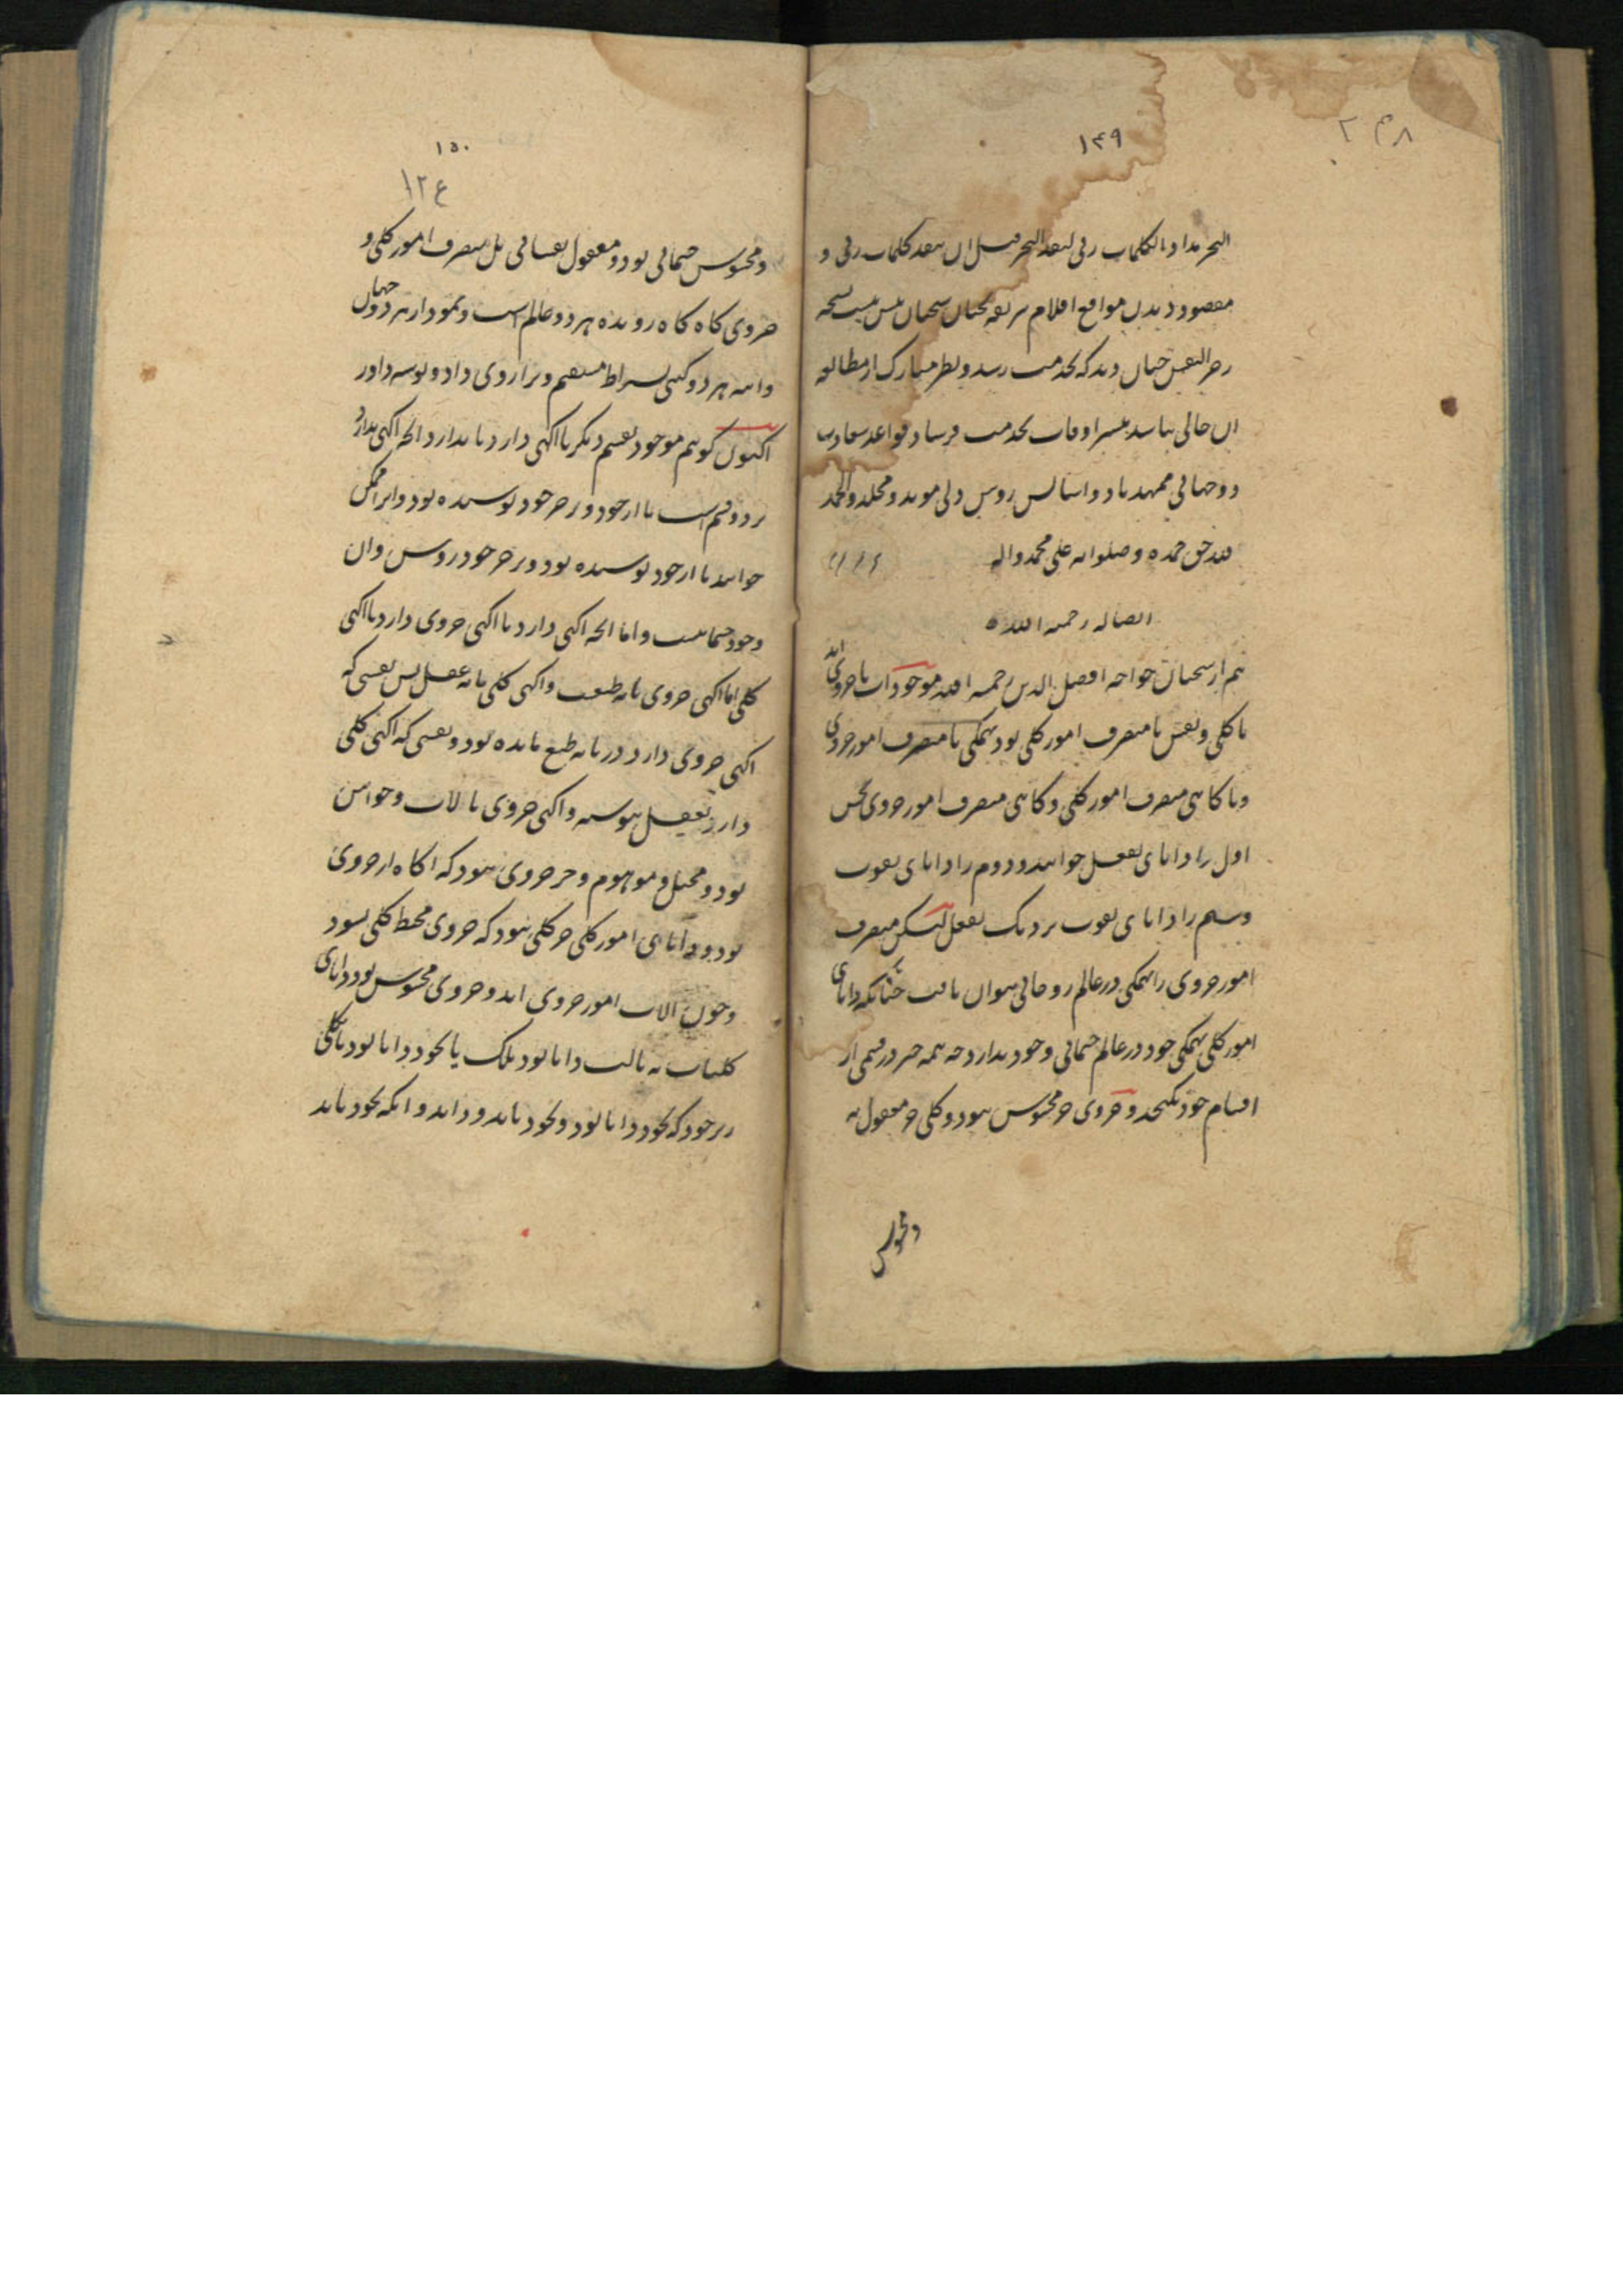 ۱۴۹
البحر مدادا لکلمات ربی لنفد البحر قبل ان تنفد کلمات ربی و
مقصود دیدن مواقع اقلام سخنان بس نیست نسخه
چنان دید که بخدمت رسد و بنظر مبارک از مطالعه
آن خالی نباشد بیشتر اوقات بخدمت فرستاد قواعد سعادت
دوجهانی ممهد باد و اساس روشن دلی موید و مخلد والحمد
لله حق حمده و صلواته علی محمد واله
ایضا له رحمه الله
هم از سخنان خواجه افضل الدین رحمه الله موجودات یا جزوی اند
یا کلی و نفس یا متصرف امور کلی بود بهمگی یا متصرف امور جزوی
و یا گاهی متصرف امور کلی و گاهی متصرف امور جزوی
اول را دانای بفعل خوانند و دوم را دانای بقوت
و سیم را دانای بقوت نزدیک بفعل لیکن متصرف
امور جزوی را بهمگی در عالم روحانی نتوان یافت چنانکه دانای
امور کلی بهمگی خود در عالم جسمانی وجود ندارد چه همه چیز در قسمی از
اقسام خود گنجد و جزوی جز محسوس نبود و کلی جز معقول نه
و محسوس
۱۵۰
۱۲۴
و محسوس جسمانی بود و معقول نفسانی بل متصرف امور کلی و
جزوی گاه گاه رونده هر دو عالم است و نمودار هر دو جهان
و هر دو گیتی بسراط مستقیم و ترازوی داد و
اکنون گوییم موجود بقسم دیگر یا آگهی دارد یا ندارد انچه آگهی ندارد
بر دو قسم است یا از خود و بر جز خود پوشیده بود و این را ممکن
خوانند یا از خود پوشیده بود و بر جز خود روشن و آن
وجود جسمانیست و اما انچه آگهی دارد یا آگهی جزوی دارد یا آگهی
کلی اما آگهی جزوی مایه طبیعت و آگهی کلی مایه عقل پس نفسی که
آگهی جزوی دارد در مایه طبع مانده بود و نفسی که آگهی کلی
دارد بعقل پیوسته و آگهی جزوی بآلات و حواس
بود و مخیل و موهوم و جز جزوی نبود که آگاه از جزوی
بود و دانای امور کلی جز کلی نبود که جزوی محیط کلی نشود
و چون آلات امور جزوی اند و جزوی محسوس بود دانای
کلیات نه بآلت دانا بود بلک یا بخود دانا بود یا بکلی
برتر خود که بخود دانا بود و بخود باید و داند و آنکه بخود باید